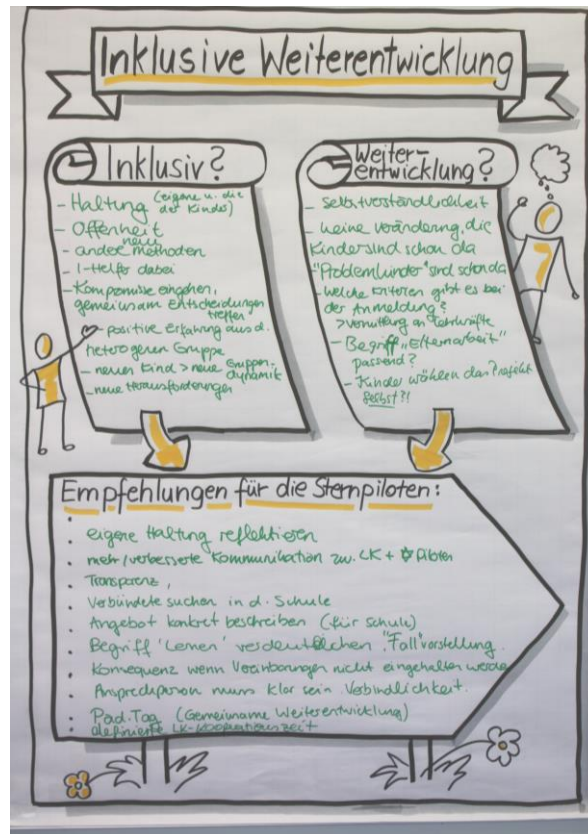 Inklusive Weiterentwicklung
Inklusiv?
- Haltung (eigene u. die
der Kinder)
- Offenheit
neue
- andere methoden
- I-Helfer dabei
- Kompromisse eingehen,
gemeinsam Entscheidungen
treffen
- positive Erfahrung aus d.
heterogenen Gruppe
- neues Kind > neue Gruppen-
dynamik
- neue Herausforderungen
Weiter-
entwicklung?
- selbstverständlichkeit
- keine Veränderung, die
Kinder sind schon da
"Problemkinder" sind schon da
- welche Kriterien gibt es bei
der Anmeldung?
> Vermittlung an Lehrkräfte
- Begriff "Elternarbeit"
passend?
- Kinder wählen das Projekt
selbst?!
Empfehlungen für die Sternpiloten:
• eigene Haltung reflektieren
• mehr/verbesserte Kommunikation zw. LK + ✡ Piloten
• Transparenz,
• Verbündete suchen in d. Schule
• Angebot konkret beschreiben (für schule)
• Begriff 'Lernen' verdeutlichen "Fall"vorstellung.
• Konsequenz wenn Vereinbarungen nicht eingehalten werden
• Ansprechperson muss klar sein Verbindlichkeit.
• Päd. Tag (Gemeinsame Weiterentwicklung)
definierte LK-Kooperationszeit